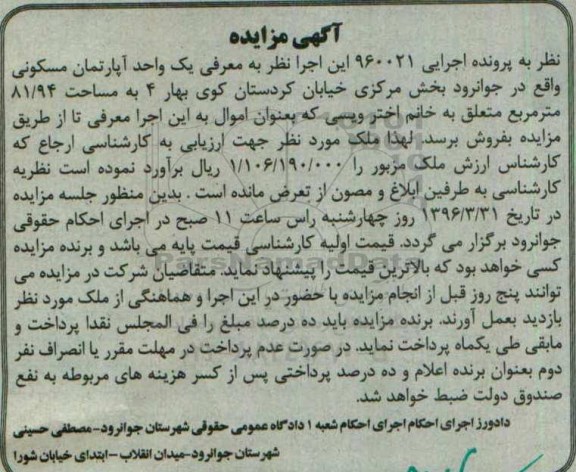 آگهی مزایده
نظر به پرونده اجرایی ۹۶۰۰۲۱ این اجرا نظر به معرفی یک واحد آپارتمان مسکونی
واقع در جوانرود بخش مرکزی خیابان کردستان کوی بهار ۴ به مساحت ۸۱/۹۴
مترمربع متعلق به خانم اختر ویسی که بعنوان اموال به این اجرا معرفی تا از طریق
مزایده بفروش برسد. لهذا ملک مورد نظر جهت ارزیابی به کارشناسی ارجاع که
کارشناس ارزش ملک مزبور را ۱/۱۰۶/۱۹۰/۰۰۰ ریال برآورد نموده است نظریه
کارشناسی به طرفین ابلاغ و مصون از تعرض مانده است . بدین منظور جلسه مزایده
در تاریخ ۱۳۹۶/۳/۳۱ روز چهارشنبه راس ساعت ۱۱ صبح در اجرای احکام حقوقی
جوانرود برگزار می گردد. قیمت اولیه کارشناسی قیمت پایه می باشد و برنده مزایده
کسی خواهد بود که بالاترین قیمت را پیشنهاد نماید. متقاضیان شرکت در مزایده می
توانند پنج روز قبل از انجام مزایده با حضور در این اجرا و هماهنگی از ملک مورد نظر
بازدید بعمل آورند. برنده مزایده باید ده درصد مبلغ را فی المجلس نقدا پرداخت و
مابقی طی یکماه پرداخت نماید. در صورت عدم پرداخت در مهلت مقرر یا انصراف نفر
دوم بعنوان برنده اعلام و ده درصد پرداختی پس از کسر هزینه های مربوطه به نفع
صندوق دولت ضبط خواهد شد.
دادورز اجرای احکام اجرای احکام شعبه ۱ دادگاه عمومی حقوقی شهرستان جوانرود-مصطفی حسینی
شهرستان جوانرود-میدان انقلاب -ابتدای خیابان شورا
ParsNamadData